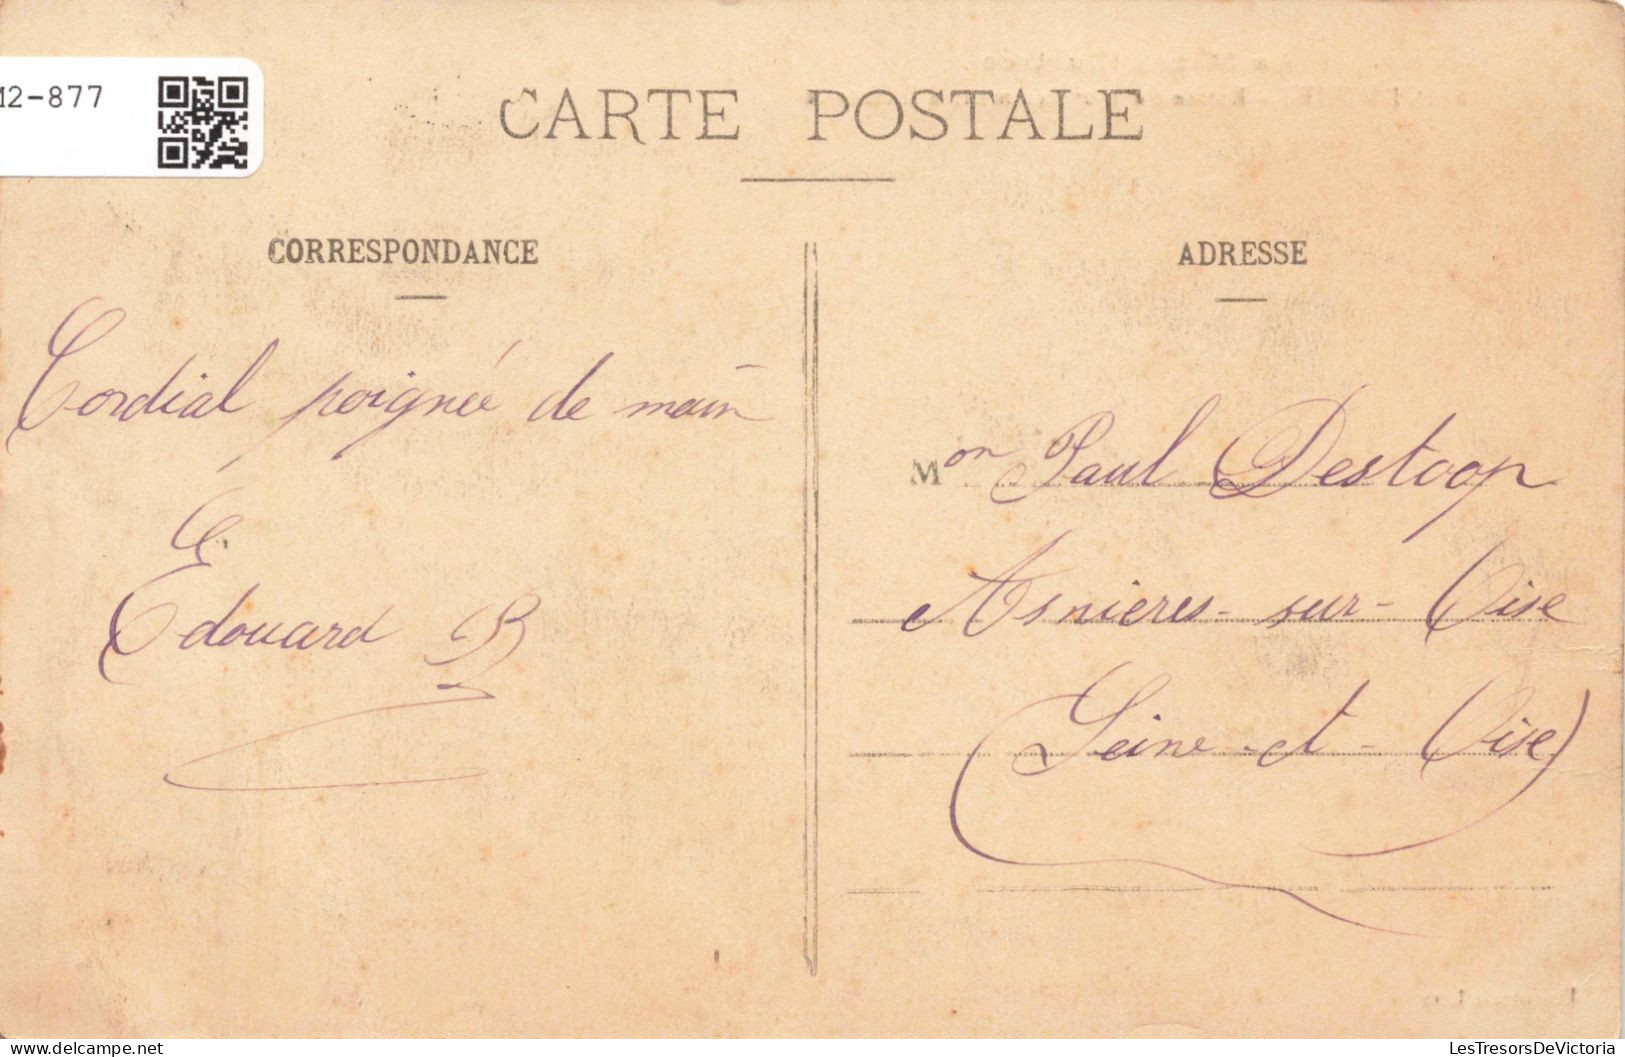 M2-877
CARTE POSTALE
CORRESPONDANCE
ADRESSE
Cordial poignée de main
Edouard B
Mon Paul Destoop
Asnieres-sur-Oise
(Seine-et-Oise)
LesTresorsDeVictoria
https://www.delcampe.net